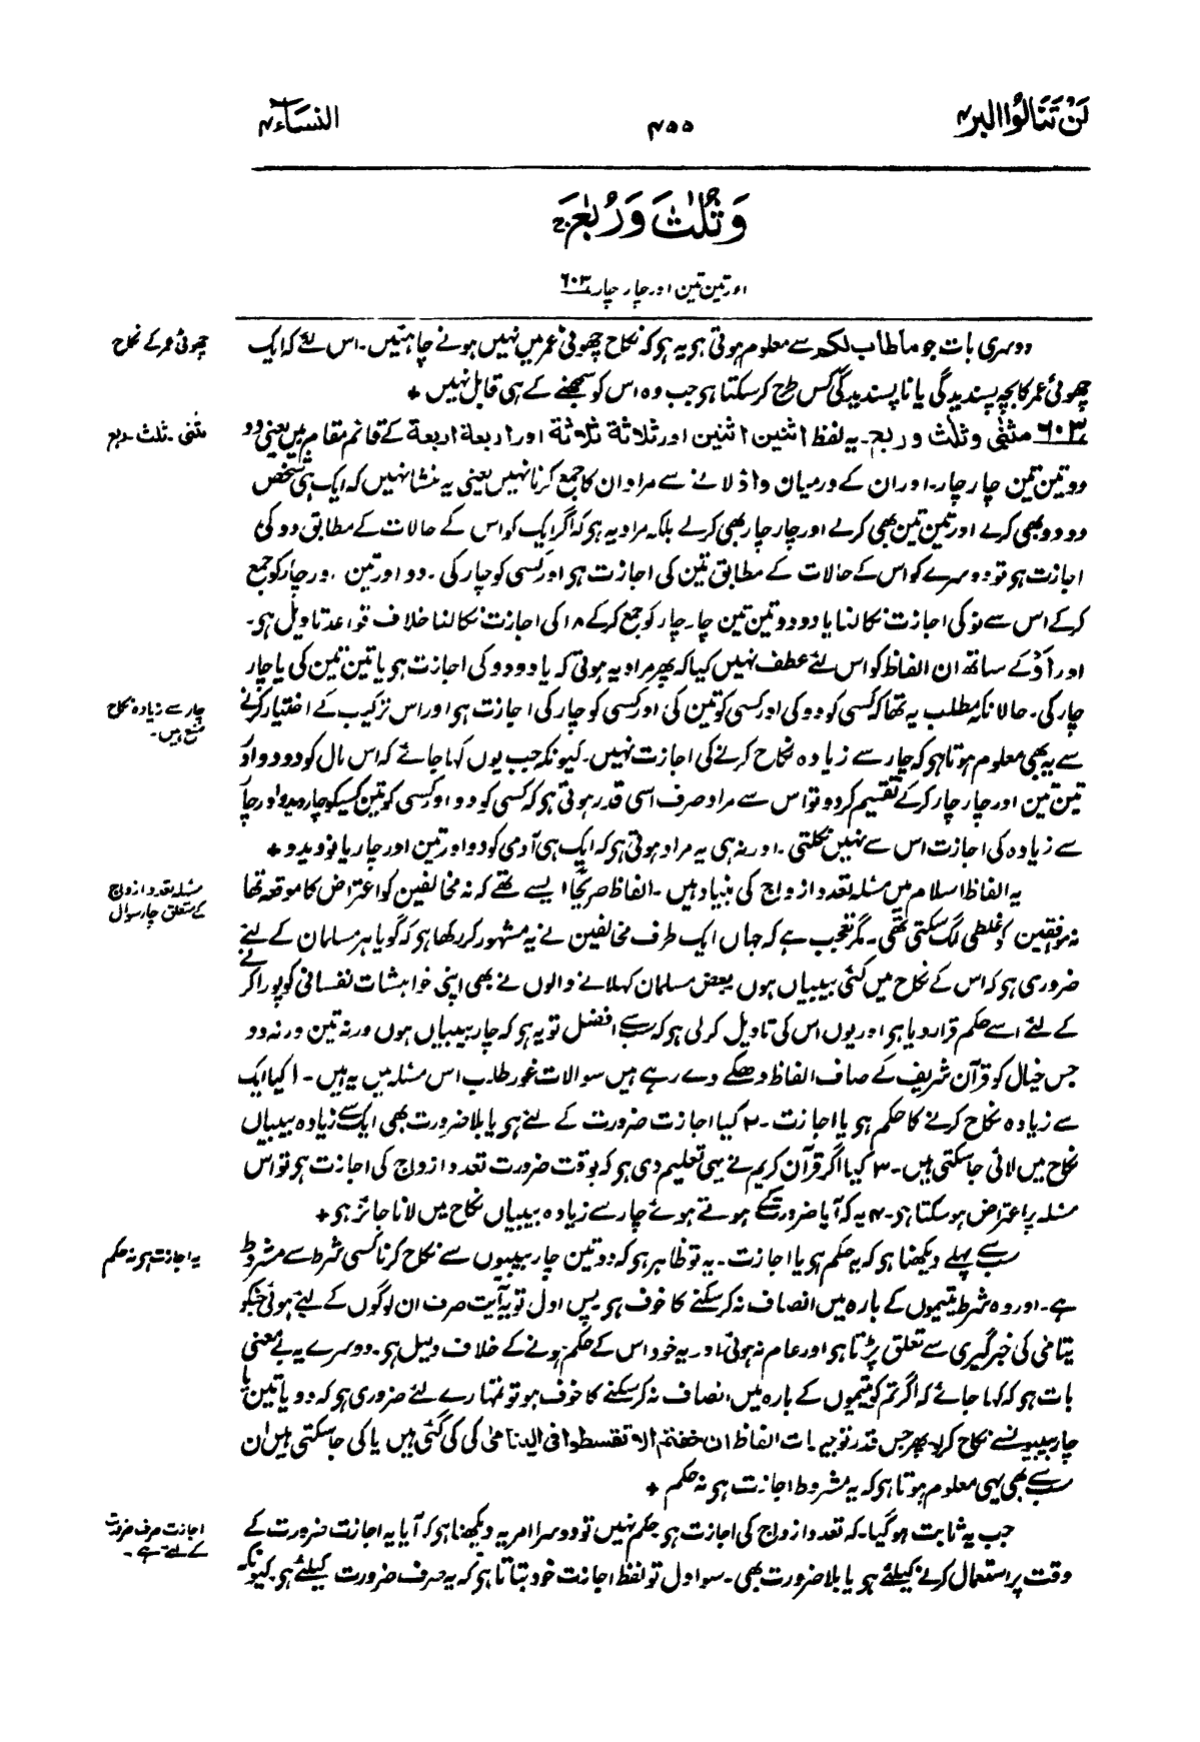 لَنْ تَنَالُوا البر ۴
۴۵۵
النساء ۴
وَثُلٰثَ وَرُبٰعَ ج
اور تین تین اور چار چار ۶۰۳
دوسری بات جو ماطاب لکم سے معلوم ہوتی ہو یہ ہو کہ نکاح چھوٹی عمر میں نہیں ہونے چاہئیں۔ اس لئے کہ ایک
چھوٹی عمر کے نکاح
چھوٹی عمر کا بچہ پسندیدگی یا ناپسندیدگی کس طرح کرسکتا ہو جب وہ اس کو سمجھنے کے ہی قابل نہیں +
۶۰۳ مثنٰی وثلٰث و ربع۔ یہ لفظ اثنین اثنین اور ثلاثة ثلاثة اور اربعة اربعة کے قائم مقام ہیں یعنی دو
مثنٰی۔ ثلٰث۔ ربع
دو تین تین چار چار۔ اور ان کے درمیان واؤ لانے سے مراد ان کا جمع کرنا نہیں یعنی یہ منشا نہیں کہ ایک ہی شخص
دو دو بھی کرلے اور تین تین بھی کرلے اور چار چار بھی کرلے بلکہ مراد یہ ہو کہ اگر ایک کو اس کے حالات کے مطابق دو کی
اجازت ہو تو دوسرے کو اس کے حالات کے مطابق تین کی اجازت ہو اور کسی کو چار کی۔ دو اور تین اور چار کو جمع
کرکے اس سے نو کی اجازت نکالنا یا دو دو تین تین چار چار کو جمع کرکے ۱۸ کی اجازت نکالنا خلاف قواعد تاویل ہی۔
اور اَوْ کے ساتھ ان الفاظ کو اس لئے عطف نہیں کیا کہ پھر مراد یہ ہوتی کہ یا دو دو کی اجازت ہو یا تین تین کی یا چار
چار کی۔ حالانکہ مطلب یہ تھا کہ کسی کو دو کی اور کسی کو تین کی اور کسی کو چار کی اجازت ہو اور اس ترکیب کے اختیار کرنے
چار سے زیادہ نکاح
منع ہیں۔
سے یہ بھی معلوم ہوتا ہو کہ چار سے زیادہ نکاح کرنے کی اجازت نہیں۔ کیونکہ جب یوں کہا جائے کہ اس مال کو دو دو اور
تین تین اور چار چار کرکے تقسیم کردو تو اس سے مراد صرف اسی قدر ہوتی ہو کہ کسی کو دو اور کسی کو تین کسی کو چار دیدو اور چار
سے زیادہ کی اجازت اس سے نہیں نکلتی۔ اور نہ ہی یہ مراد ہوتی ہو کہ ایک ہی آدمی کو دو اور تین اور چار یا نو دیدو +
یہ الفاظ اسلام میں مسئلہ تعدد ازواج کی بنیاد ہیں۔ الفاظ صریحًا ایسے تھے کہ نہ مخالفین کو اعتراض کا موقعہ تھا
مسئلہ تعدد ازدواج
کے متعلق چار سوال
نہ موافقین کو غلطی لگ سکتی تھی۔ مگر تعجب ہے کہ جہاں ایک طرف مخالفین نے یہ مشہور کر رکھا ہو کہ گویا ہر مسلمان کے لیے
ضروری ہو کہ اس کے نکاح میں کئی بیبیاں ہوں بعض مسلمان کہلانے والوں نے بھی اپنی خواہشات نفسانی کو پورا کرنے
کے لئے اسے حکم قرار دیا ہو اور یوں اس کی تاویل کرلی ہو کہ سب افضل تو یہ ہو کہ چار بیبیاں ہوں ورنہ تین ورنہ دو
جس خیال کو قرآن شریف کے صاف الفاظ دھکے دے رہے ہیں سوالات غور طلب اس مسئلہ میں یہ ہیں۔ ۱ کیا ایک
سے زیادہ نکاح کرنے کا حکم ہو یا اجازت۔ ۲ کیا اجازت ضرورت کے لئے ہو یا بلا ضرورت بھی ایک سے زیادہ بیبیاں
نکاح میں لائی جاسکتی ہیں۔ ۳ کیا اگر قرآن کریم نے یہی تعلیم دی ہو کہ بوقت ضرورت تعدد ازواج کی اجازت ہو تو اس
مسئلہ پر اعتراض ہوسکتا ہو۔ ۴ یہ کہ آیا ضرورت کے ہوتے ہوئے چار سے زیادہ بیبیاں نکاح میں لانا جائز ہو +
سب پہلے دیکھنا ہو کہ یہ حکم ہو یا اجازت۔ یہ تو ظاہر ہو کہ دو تین چار بیبیوں سے نکاح کرنا کسی شرط سے مشروط
یہ اجازت ہو نہ حکم
ہے۔ اور وہ شرط یتیموں کے بارہ میں انصاف نہ کرسکنے کا خوف ہو پس اول تو یہ آیت صرف ان لوگوں کے لیے ہوئی جنکو
یتامٰی کی خبرگیری سے تعلق پڑتا ہو اور عام نہ ہوئی اور یہ خود اس کے حکم ہونے کے خلاف دلیل ہو۔ دوسرے یہ بے معنی
بات ہو کہ کہا جائے کہ اگر تم کو یتیموں کے بارہ میں انصاف نہ کرسکنے کا خوف ہو تو تمہارے لئے ضروری ہو کہ دو یا تین یا
چار بیبیوں سے نکاح کرلو۔ پھر جس قدر توجیہات الفاظ ان خفتم الا تقسطوا فی الیتامٰی کی کی گئی ہیں یا کی جاسکتی ہیں ان
سب سے بھی یہی معلوم ہوتا ہو کہ یہ مشروط اجازت ہو نہ حکم +
جب یہ ثابت ہوگیا۔ کہ تعدد ازواج کی اجازت ہو حکم نہیں تو دوسرا امر یہ دیکھنا ہو کہ آیا یہ اجازت ضرورت کے
اجازت صرف ضرورت
کے لئے ہے۔
وقت پر استعمال کرنے کیلئے ہو یا بلا ضرورت بھی۔ سو اول تو لفظ اجازت خود بتاتا ہو کہ یہ صرف ضرورت کیلئے ہو۔ کیونکہ